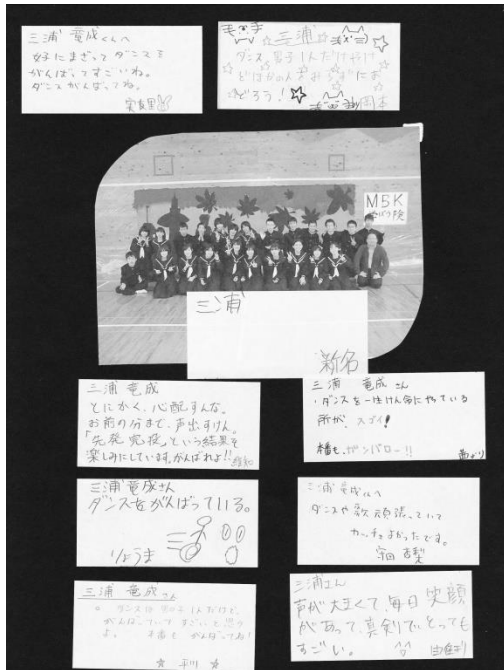 三浦 竜成くんへ
女子にまざってダンスを
がんばってすごいね。
ダンスがんばってね。
三浦
ダンス男子1人だけだけ
どほかの人
どろう!
岡本
M5K
三浦
新名
三浦 竜成
とにかく、心配すんな。
お前の分まで、声出すけん。
「先発完投」という結果を
楽しみにしています。がんばれよ!!
三浦 竜成 さん
・ダンスを一生けん命にやっている
所が、スゴイ!
本番も、ガンバロー!!
三浦竜成さん
ダンスをがんばっている。
りょうま
三浦竜成くんへ
ダンスや歌頑張っていて
カッチョよかったです。
三浦 竜成 さん
ダンスは男の子1人だけど、
がんばっていてすごいと思う
よ。 本番もがんばってね!
平川
三浦さん
声が大きくて、毎日 笑顔
があって、真剣でとっても
すごい。